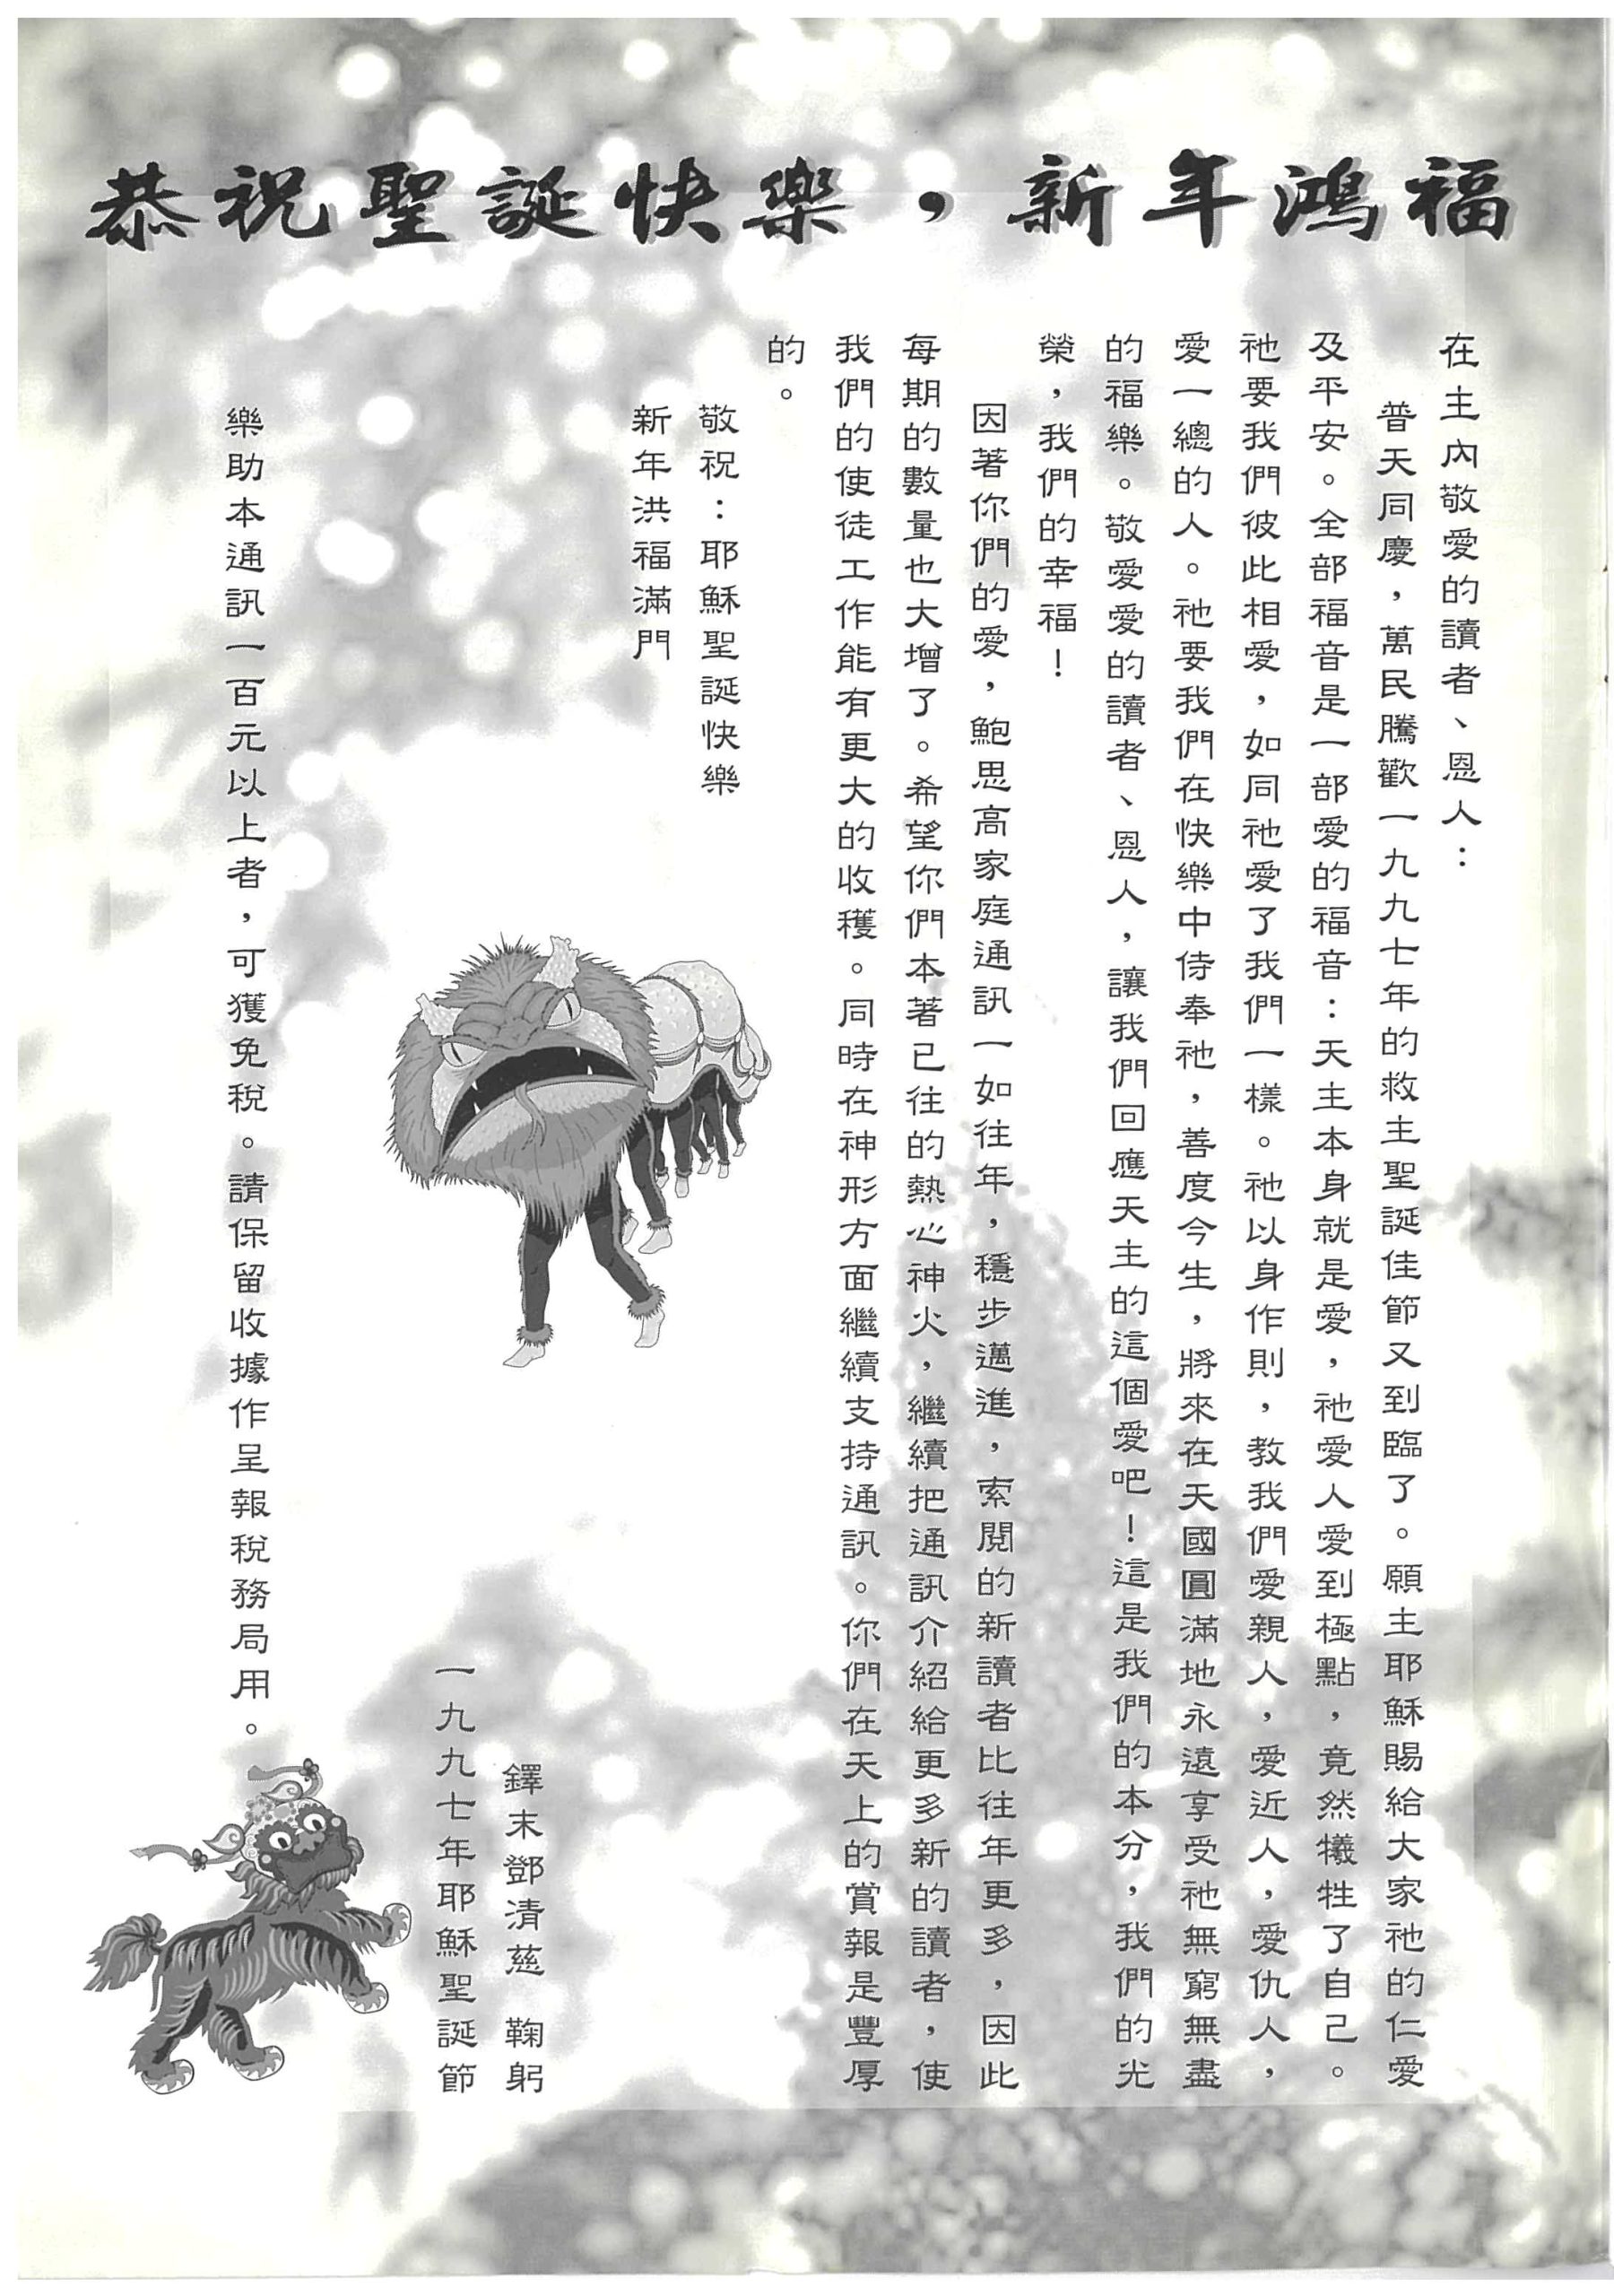 恭祝聖誕快樂，新年鴻福
在主內敬愛的讀者、恩人：
普天同慶，萬民騰歡一九九七年的救主聖誕佳節又到臨了。願主耶穌賜給大家祂的仁愛
及平安。全部福音是一部愛的福音：天主本身就是愛，祂愛人愛到極點，竟然犧牲了自己。
祂要我們彼此相愛，如同祂愛了我們一樣。祂以身作則，教我們愛親人，愛近人，愛仇人，
愛一總的人。祂要我們在快樂中侍奉祂，善度今生，將來在天國圓滿地永遠享受祂無窮無盡
的福樂。敬愛愛的讀者、恩人，讓我們回應天主的這個愛吧！這是我們的本分，我們的光
榮，我們的幸福！
因著你們的愛，鮑思高家庭通訊一如往年，穩步邁進，索閱的新讀者比往年更多，因此
每期的數量也大增了。希望你們本著已往的熱心神火，繼續把通訊介紹給更多新的讀者，使
我們的使徒工作能有更大的收穫。同時在神形方面繼續支持通訊。你們在天上的賞報是豐厚
的。
敬祝：耶穌聖誕快樂
新年洪福滿門
鐸末鄧清慈 鞠躬
一九九七年耶穌聖誕節
樂助本通訊一百元以上者，可獲免稅。請保留收據作呈報稅務局用。